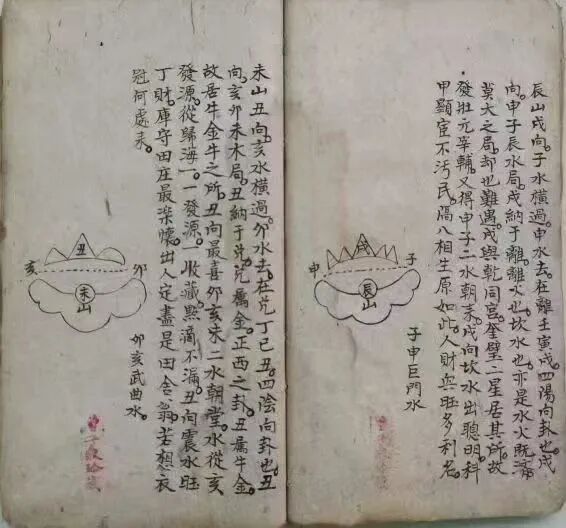 辰山戌向。子水橫過。申水去。在離壬寅戌。四陽向卦也。戌
向。申子辰水局。戌納于離。離火也。坎水也。亦是水火既濟
莫大之局。却也難遇。戌與乾同宮。奎璧二星居其所。故
發壯元宰輔。又得申子二水朝來。戌向坎水出聰明科
甲顯宦不汚民。隔八相生原如此。人財興旺多利名。
戌
申 子
辰山
子申巨門水
未山丑向。亥水橫過。卯水去。在兌丁巳丑。四陰向卦也。丑
向。亥卯未木局。丑納于兌。兌屬金。正西之卦。丑屬牛金。
故居牛金牛之所。丑向最喜卯亥未二水朝堂。水從亥
發源。從歸海。一發源。一收藏。點滴不漏。丑向震水旺
丁財。庫守田庄最深懷。出人定盡是田舍翁。苦想衣
冠何處來。
丑
亥 卯
未山
卯亥武曲水。